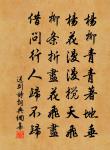 楊柳青青著地垂
楊花漫漫攪天飛
柳條折盡花飛盡
借問行人歸不歸